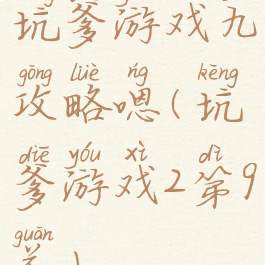 坑爹游戏九
gōng lüè ńg kēng
攻略嗯(坑
diē yóu xì dì
爹游戏2第9
guān
关)